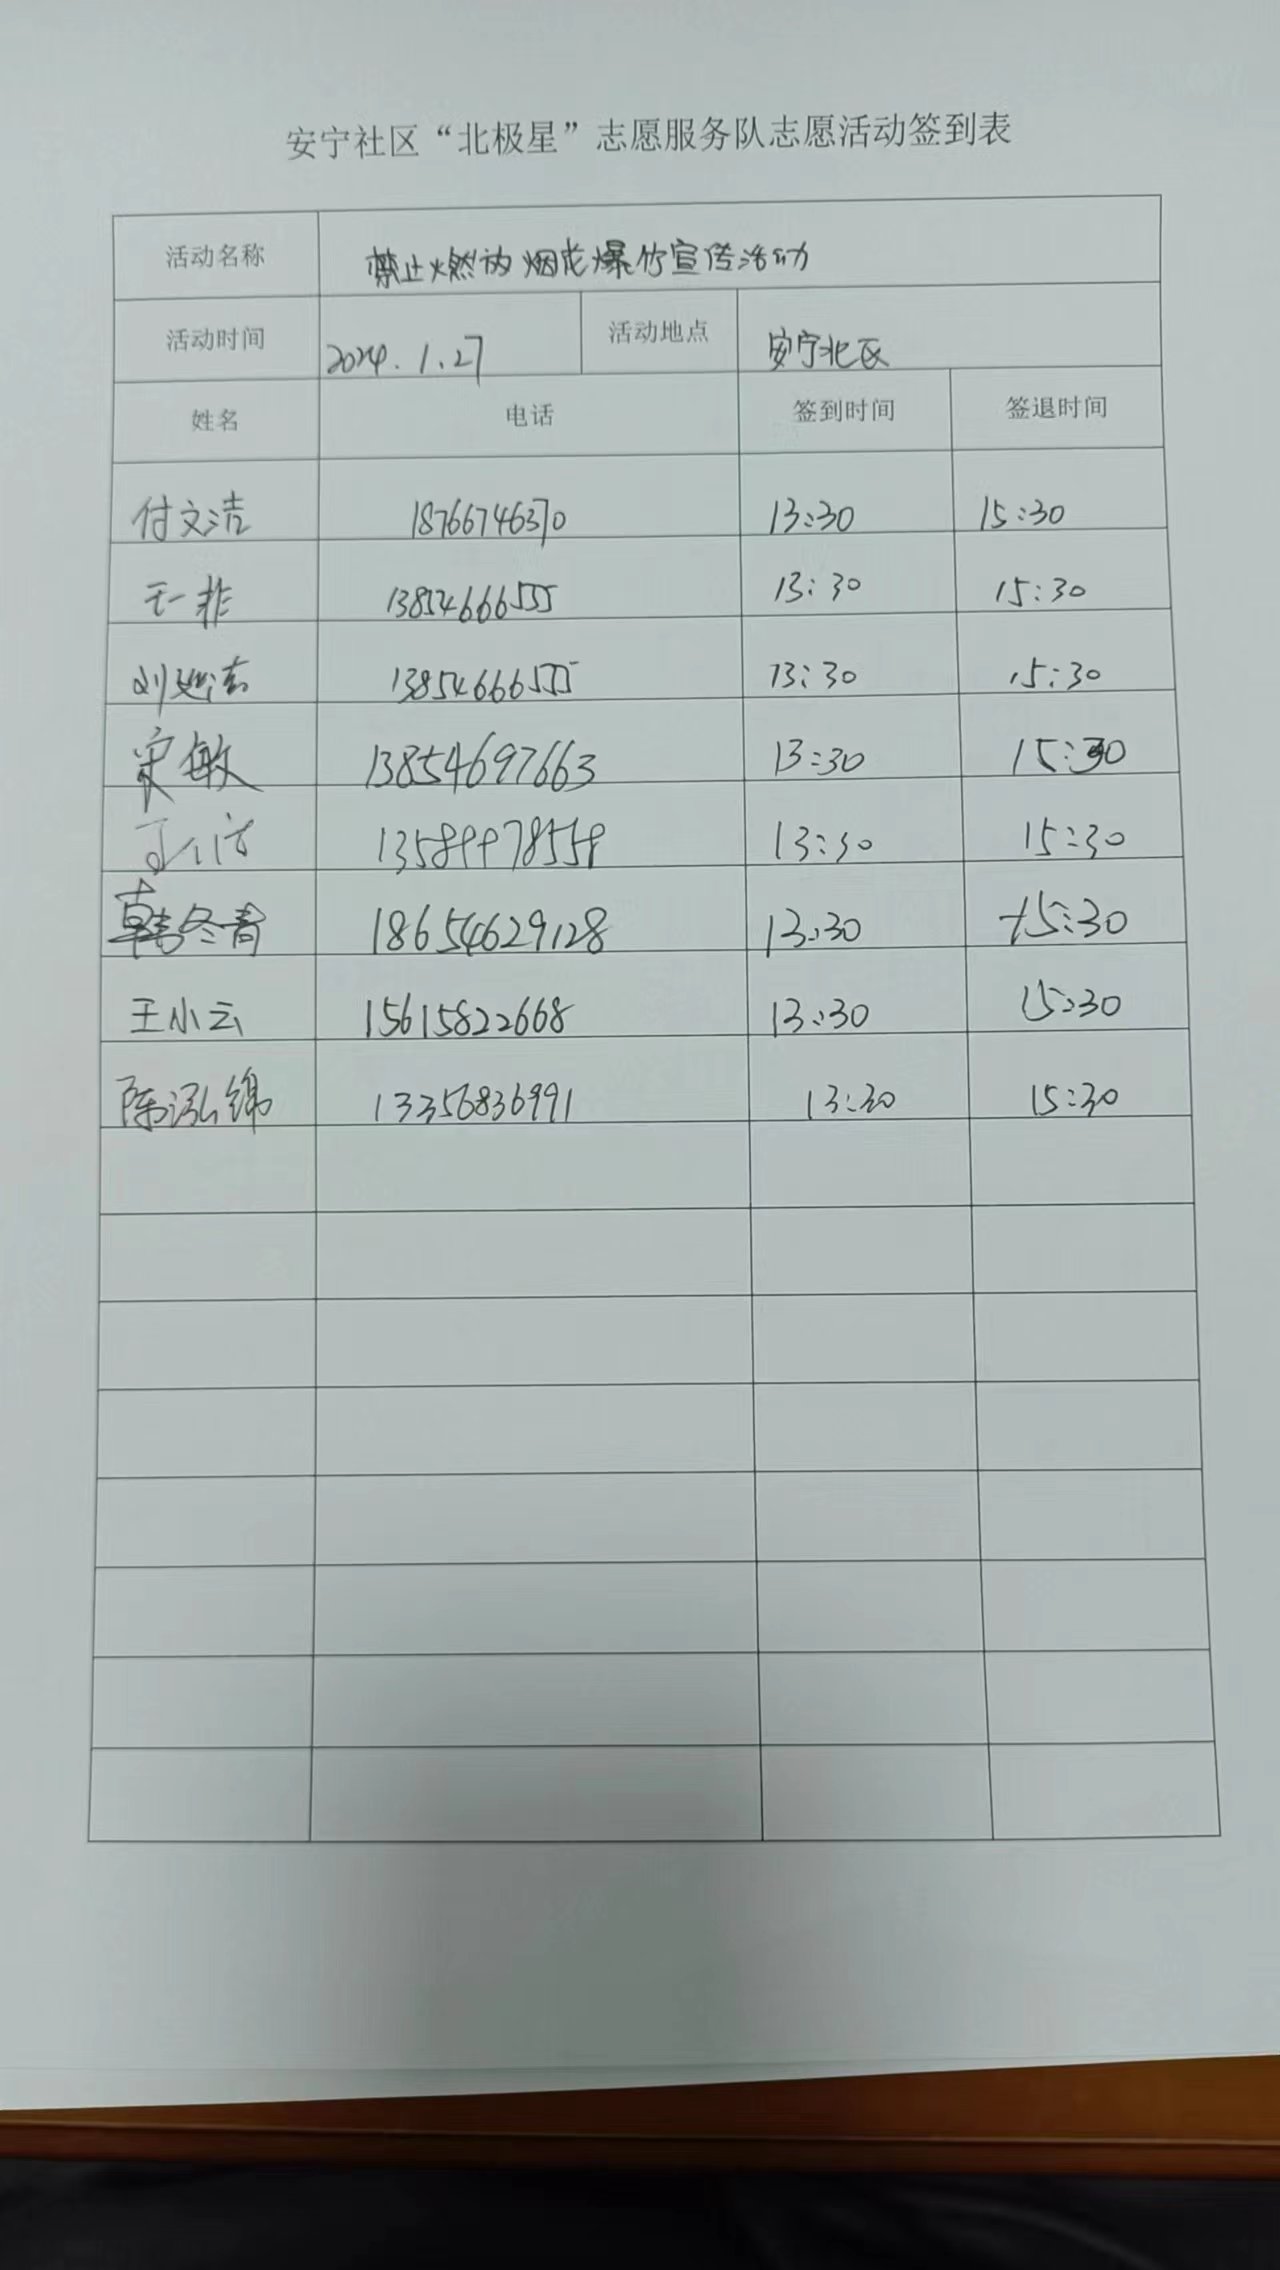 安宁社区“北极星”志愿服务队志愿活动签到表
活动名称 禁止燃放烟花爆竹宣传活动
活动时间 2024.1.27 活动地点 安宁北区
姓名 电话 签到时间 签退时间
付文洁 18766746370 13:30 15:30
王一非 13854666555 13:30 15:30
刘延吉 13854666555 13:30 15:30
宋敏 13854697663 13:30 15:30
13589978559 13:30 15:30
韩冬青 18654629128 13:30 15:30
王小云 15615822668 13:30 15:30
陈泓锦 13356836991 13:30 15:30